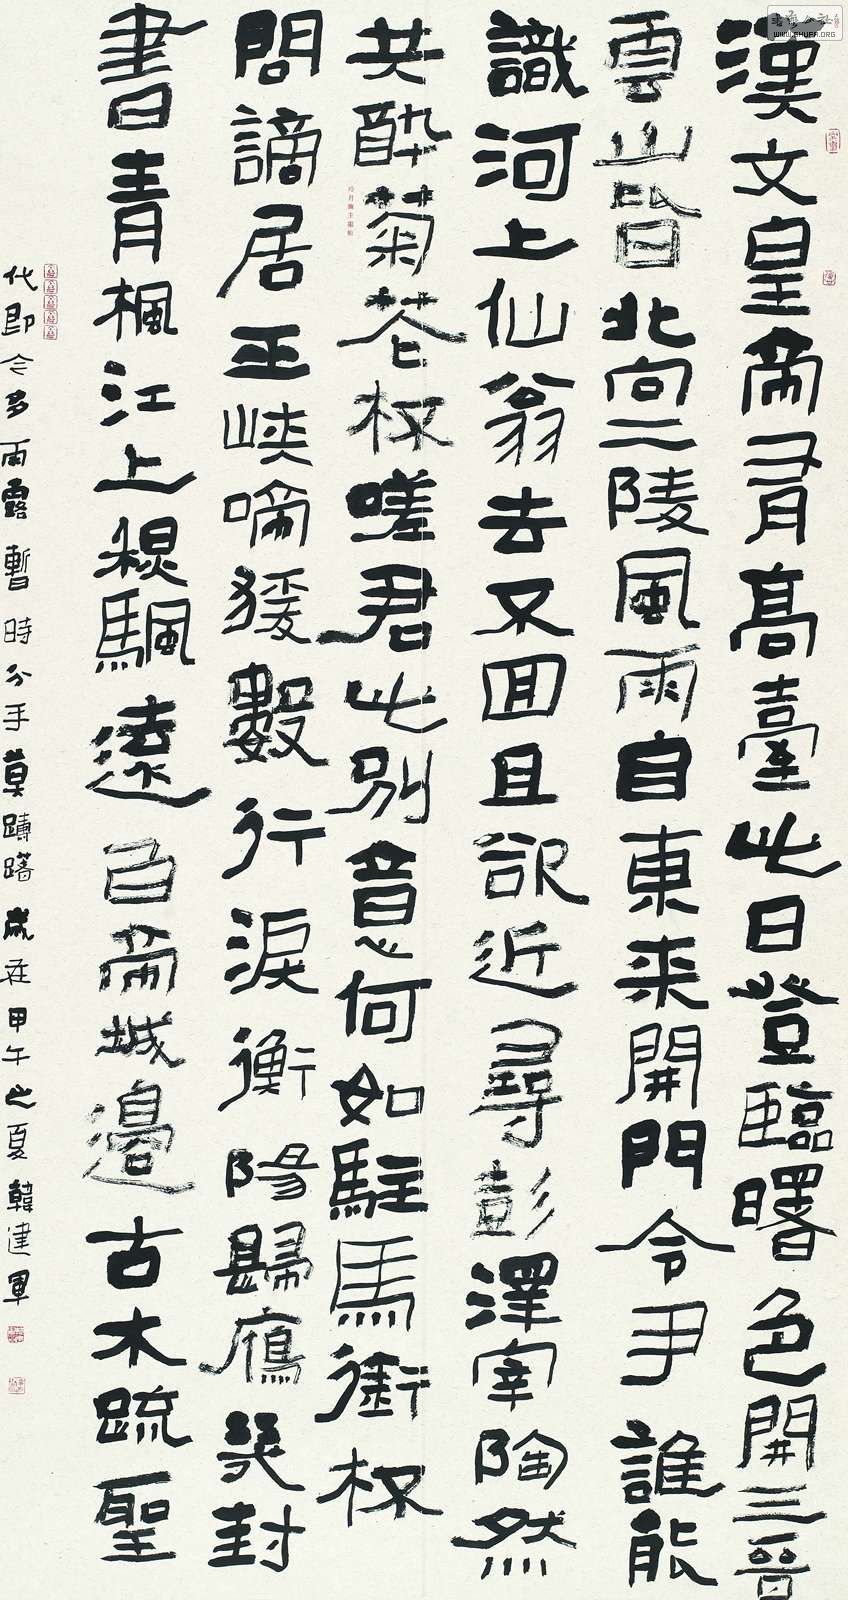 漢文皇帝有高臺此日登臨曙色開三晉
雲山皆北向二陵風雨自東來開門令尹誰能
識河上仙翁去不回且欲近尋彭澤宰陶然
共醉菊花杯嗟君此別意何如駐馬銜杯
問謫居巫峽啼猨數行淚衡陽歸鴈幾封
書青楓江上秋颿遠白帝城邊古木疏聖
代即今多雨露暫時分手莫躊躇歲在甲午之夏韓建軍
WWW.SHUFA.ORG